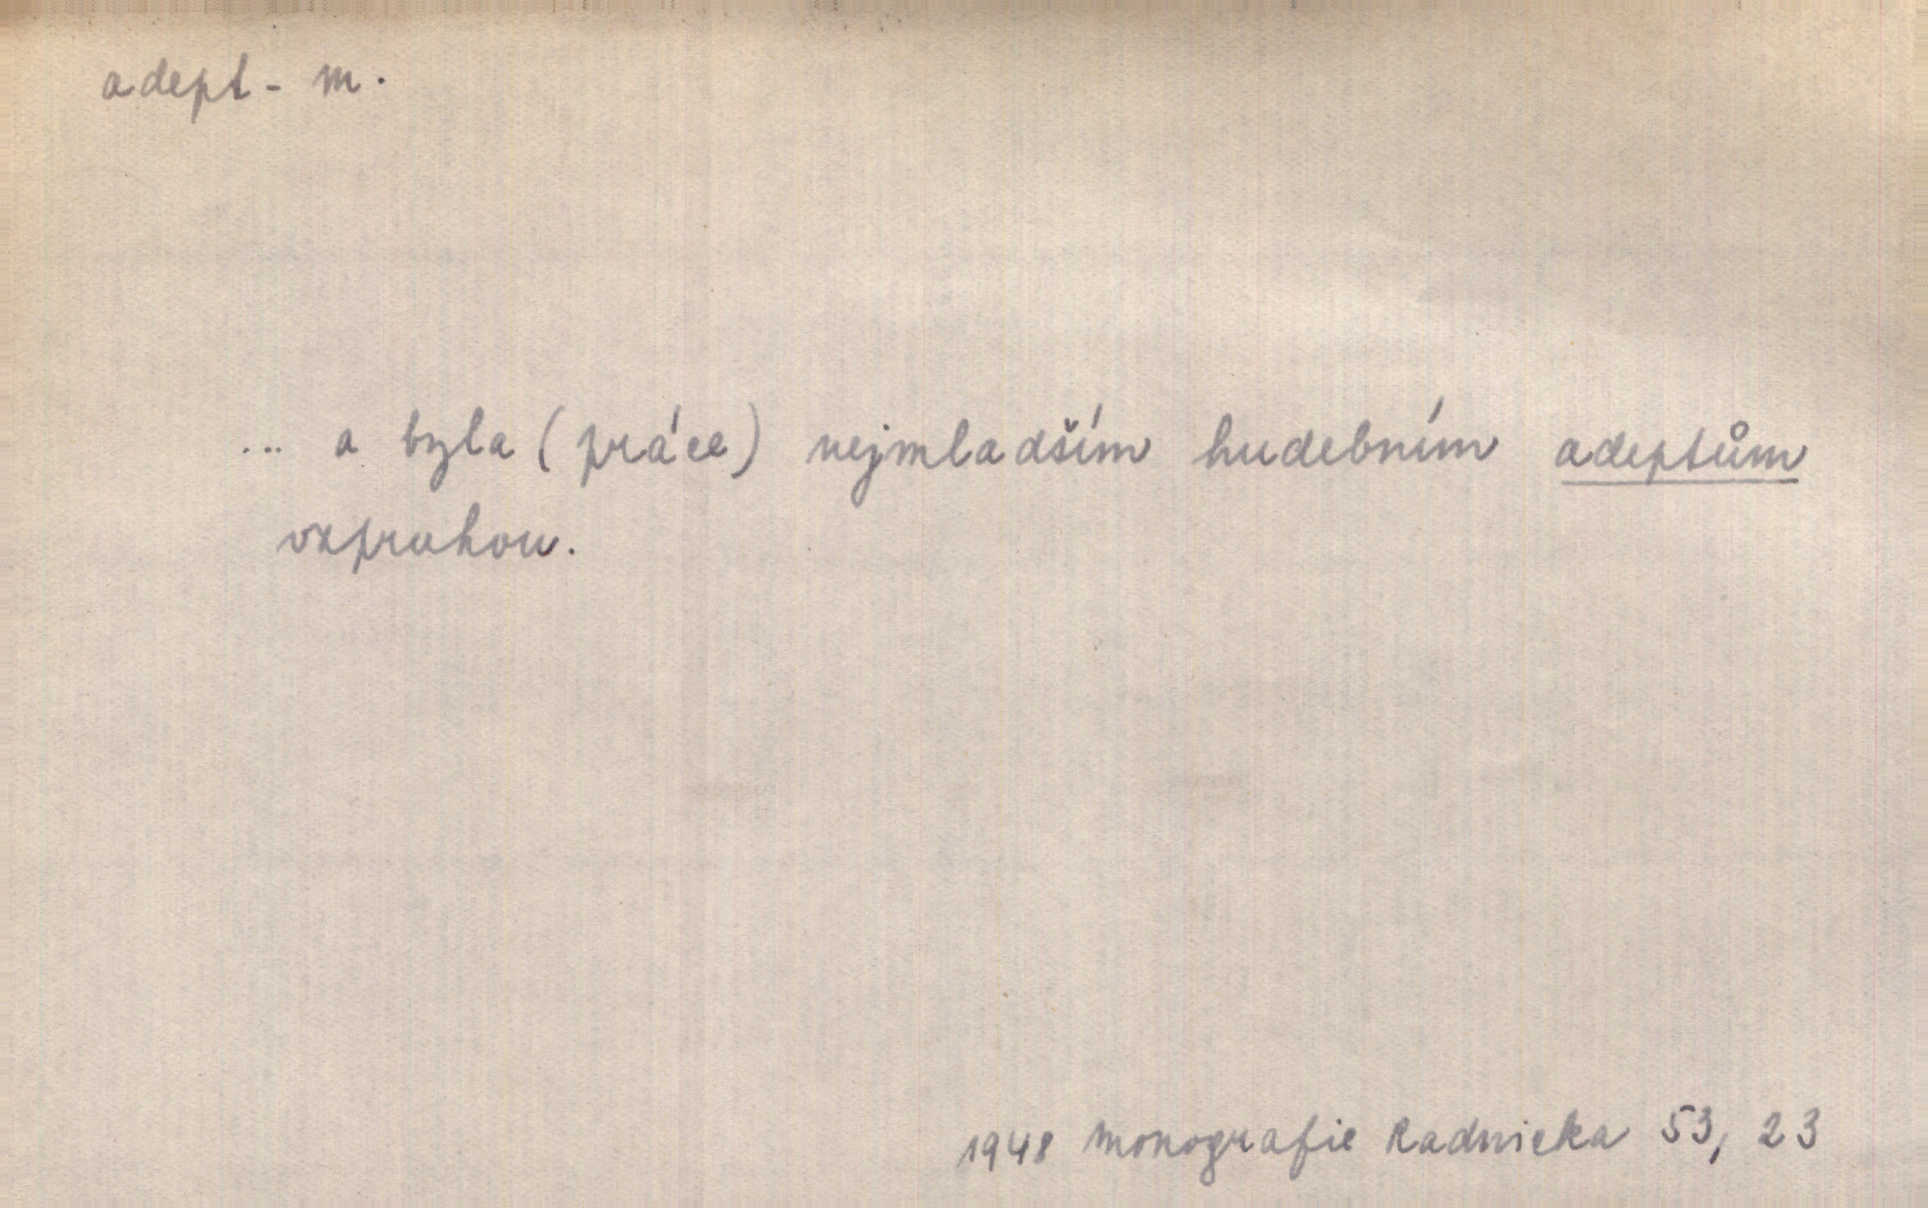 adept - m.
... a byla (práce) nejmladším hudebním adeptům
vzpruhou.
1948 Monografie Radnicka 53, 23